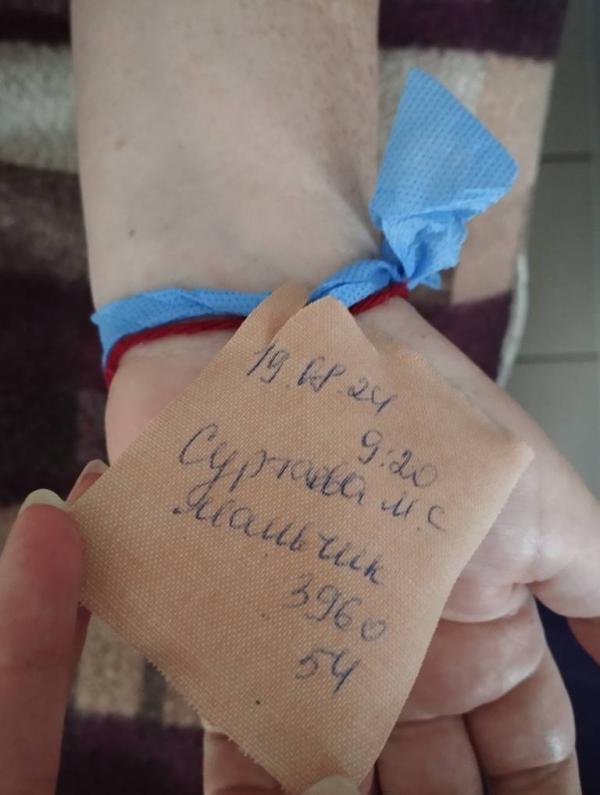 19.08.24
9:20
Суртаева М.С
мальчик
3960
54